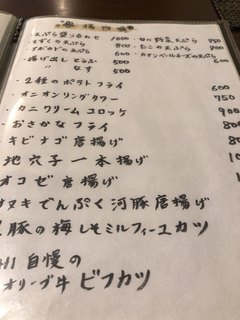 天ぷら盛り合わせ 1000
もずくの天ぷら 800
アボカドの天ぷら 800
揚げ出し とうふ 500
〃 なす 500
旬の野菜天ぷら 750
たこの天ぷら 900
カマンベールチーズの天ぷら 600
2種のポテトフライ 600
オニオンリングタワー
カニクリームコロッケ
おさかなフライ
キビナゴ唐揚げ
地穴子一本揚げ
オコゼ唐揚げ
てんぷく河豚唐揚げ
豚の梅しそミルフィーユカツ
自慢の
オリーブ牛 ビフカツ